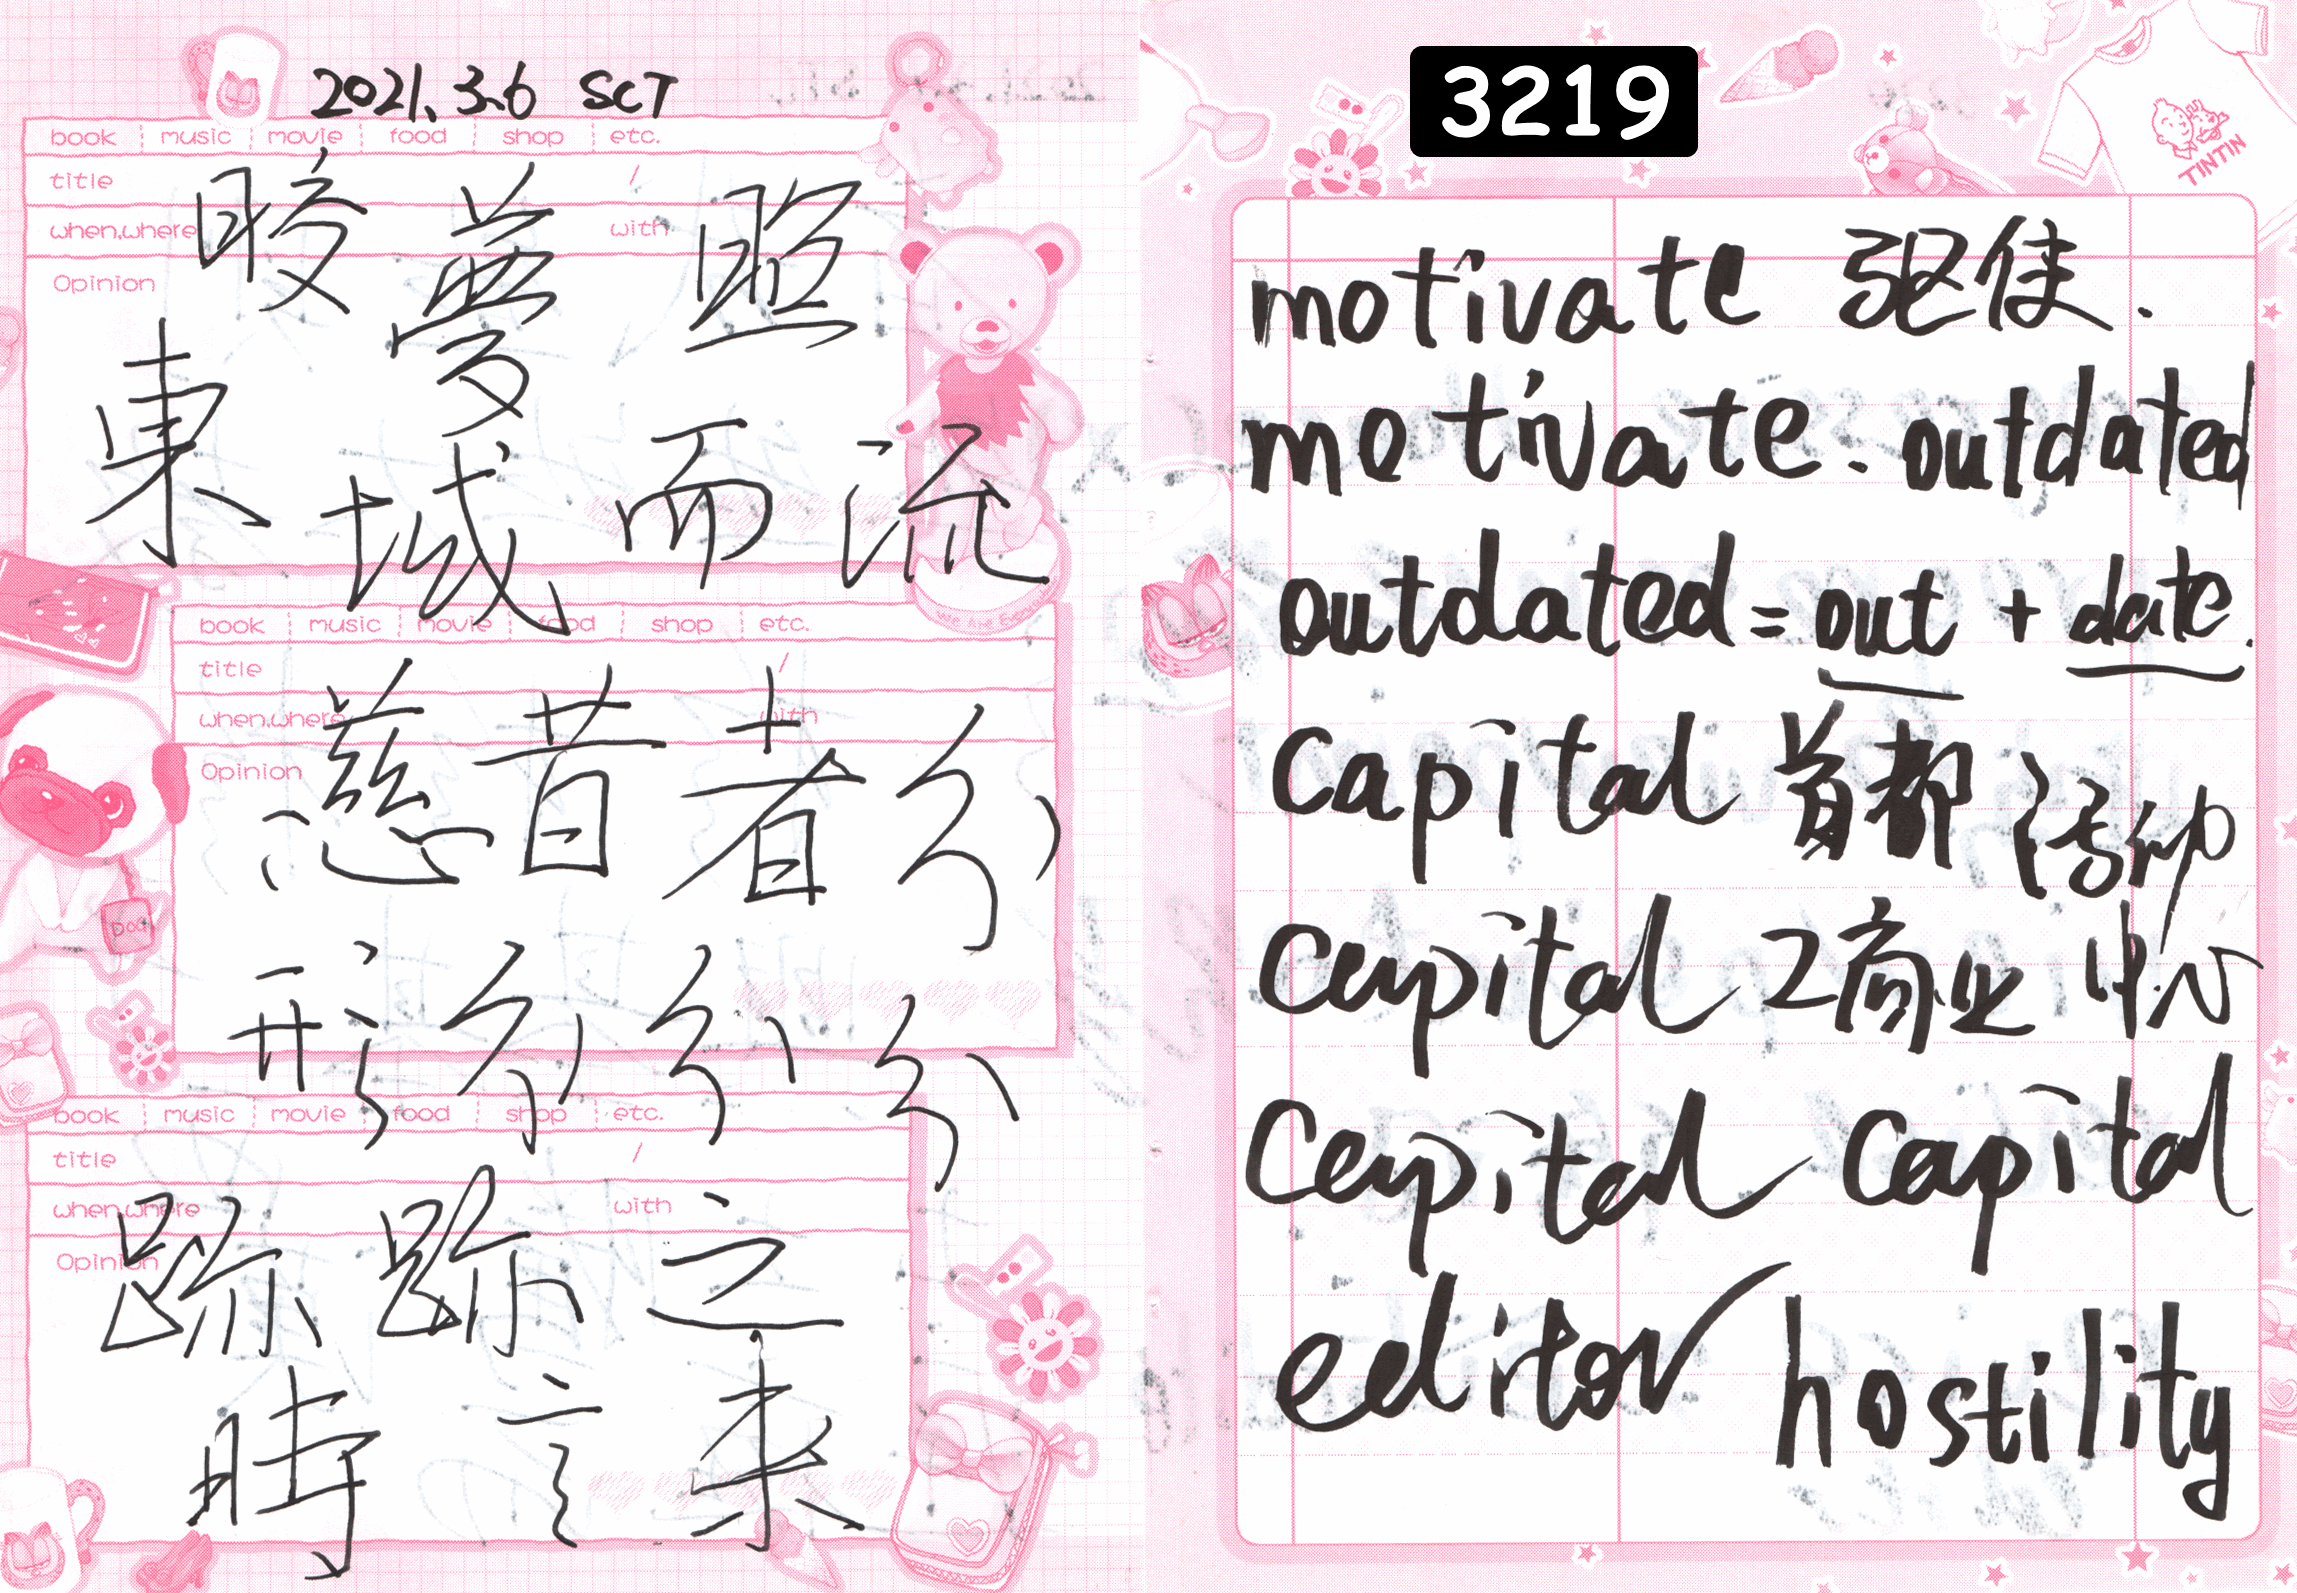 2021.3.6 SCT
book music movie food shop etc.
title /
when,where with
Opinion
晈 夢 照
東 城 而 流
book music movie food shop etc.
title /
when,where with
Opinion
慈 昔 者
形
book music movie food shop etc.
title /
when,where with
Opinion
跡 跡 之
時 言 来
3219
TINTIN
motivate 驱使.
motivate. outdated
outdated = out + date.
Capital 首都
Capital 2商业中心
Capital Capital
editor hostility